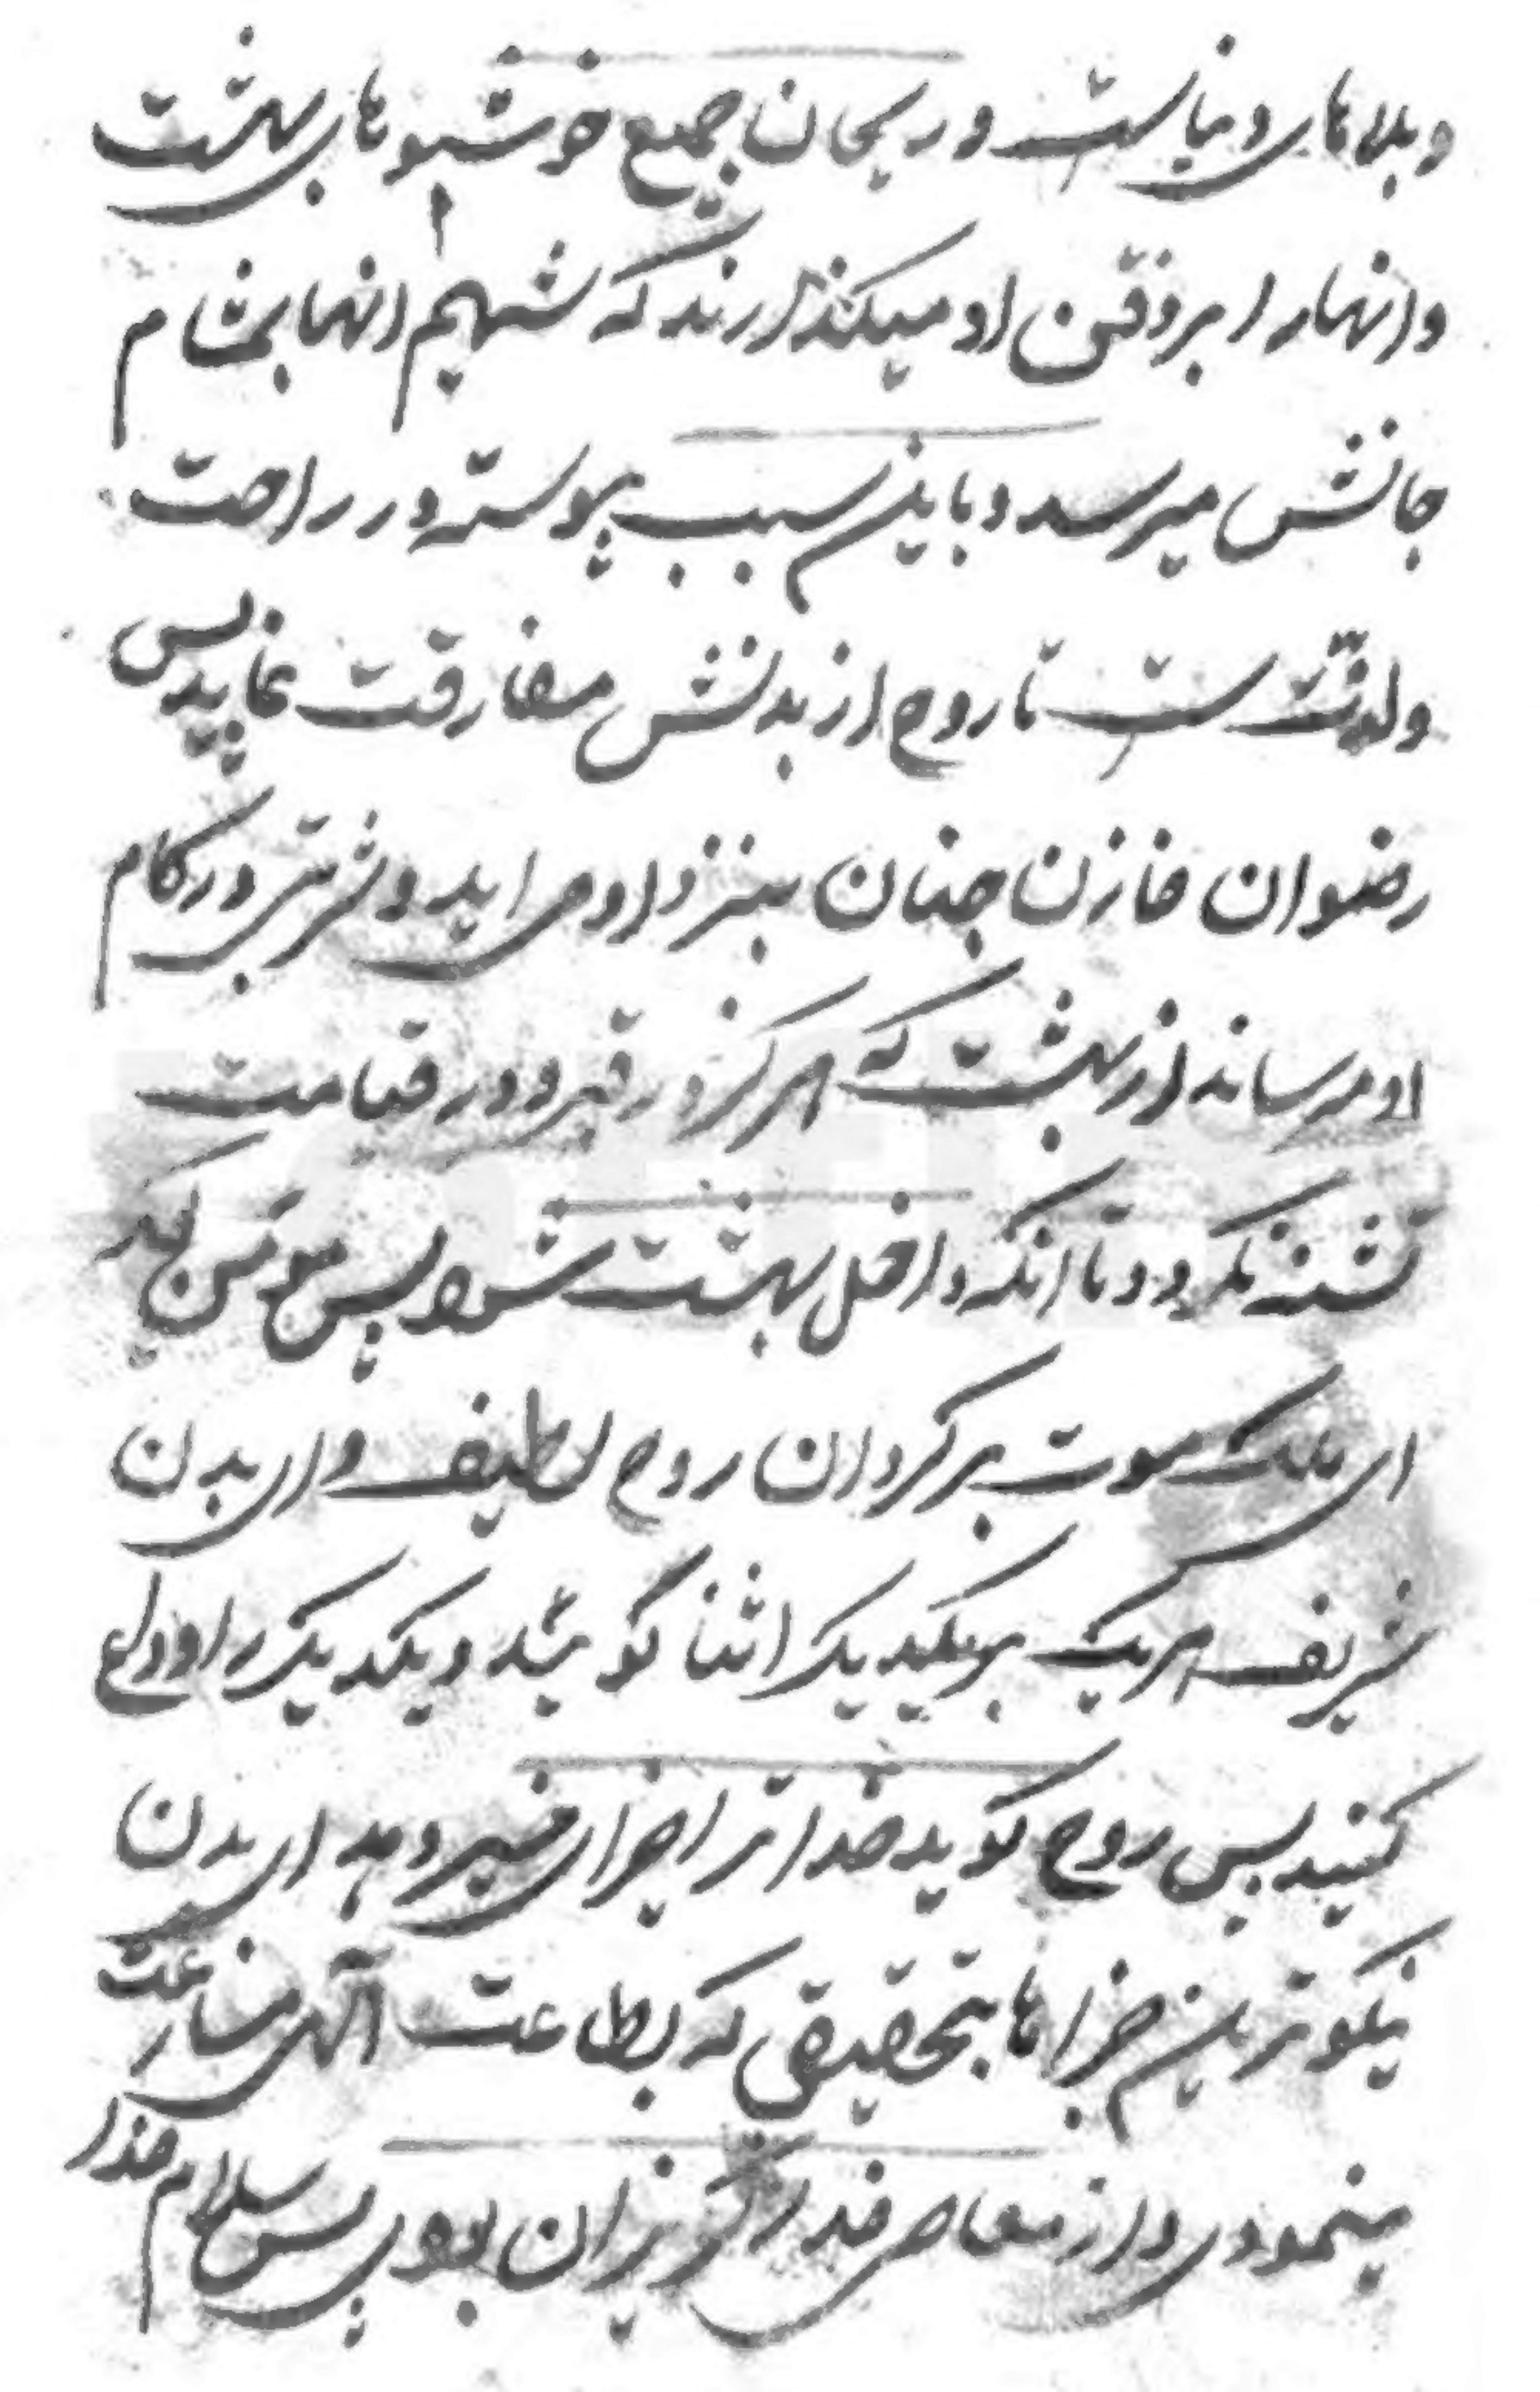 و بلاهای دنیاست و ریحان جمیع خوشبوهای بهشت
و انها را بر ذقن او میکذارند که شمیم انها بمشام
جانش میرسد و باین سبب پیوسته در راحت
و لذتست تا روح از بدنش مفارقت نماید پس
رضوان خازن جنان بنزد او می اید و شربتی در کام
او میرساند از بهشت که هرکز در قبر و در قیامت
تشنه نکردد تا انکه داخل بهشت شود پس مومن کوید
ای ملک موت برکردان روح لطیف و ای بدن
شریف هریک بریکدیکر اثنا کوئید و یکدیکر را وداع
کنید پس روح کوید خدا ترا جزای خیر دهد ای بدن
نیکوترین جزاها بتحقیقی که بطاعت آلهی مسارعت
مینمودی و از معاصی خدا کریزان بودی پس سلام خدا